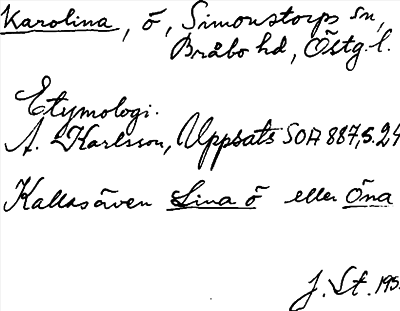 Karolina, ö, Simonstorps sn,
Bråbo hd, Östg. l.
Etymologi.
A. Karlsson, Uppsats SOA 887, s. 24
Kallas även Lina ö eller Öna
J. St. 195